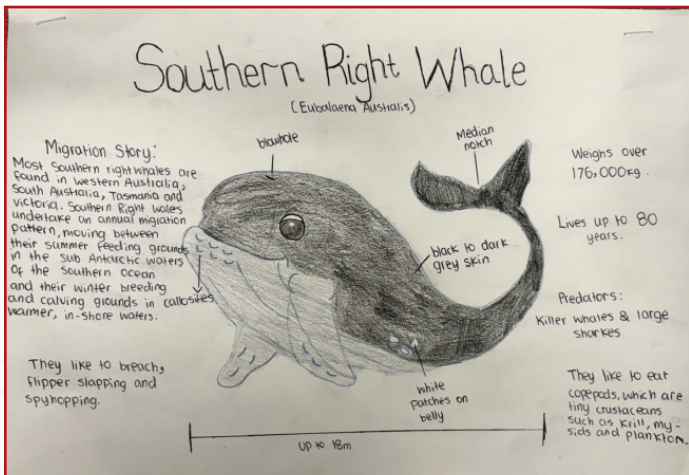 Southern Right Whale
(Eubalaena Australis)
Migration Story:
Most Southern right whales are
found in western Australia,
South Australia, Tasmania and
victoria. Southern Right wales
undertake an annual migration
pattern, moving between
their summer feeding grounds
in the sub Antarctic waters
Of the Southern ocean
and their winter breeding
and calving grounds in
warmer, in-shore waters.
They like to breach,
flipper slapping and
spyhopping.
blowhole
callosites
Median
notch
black to dark
grey skin
white
patches on
belly
Up to 18m
Weighs over
176,000kg.
Lives up to 80
years.
Predators:
Killer whales & large
sharkes
They like to eat
copepods, which are
tiny crustaceans
such as krill, my-
sids and plankton.